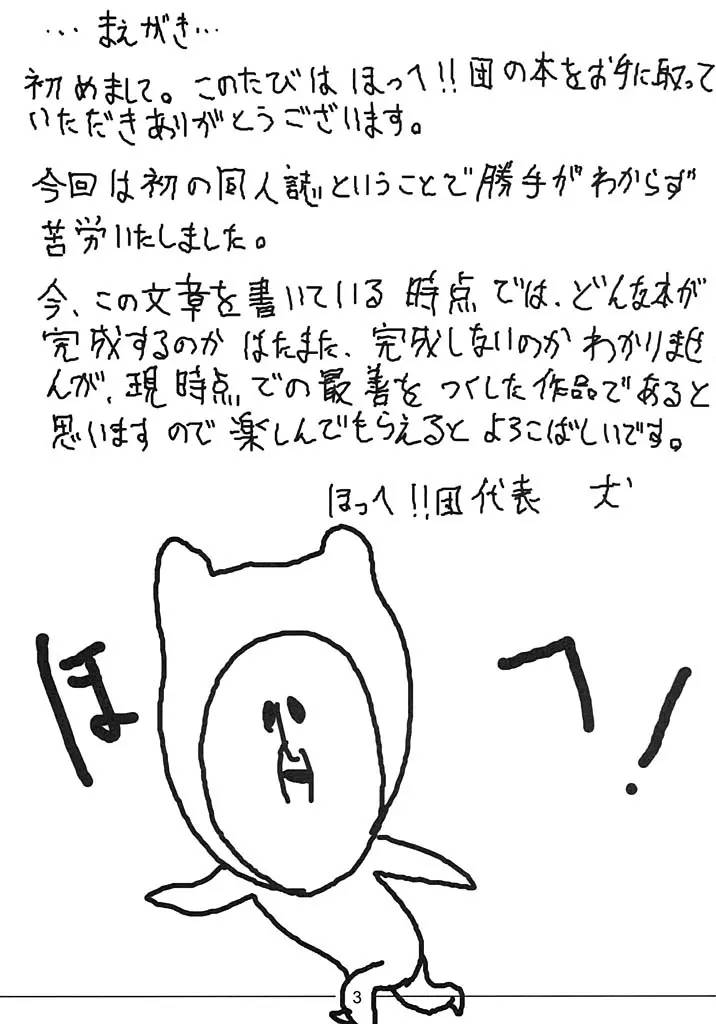 …まえがき…
初めまして。このたびは ほっへ!!団の本をお手に取って
いただきありがとうございます。
今回は初の同人誌ということで勝手がわからず
苦労いたしました。
今、この文章を書いている 時点では、どんな本が
完成するのか はたまた、完成しないのか わかりませ
んが、現時点での最善を つくした作品であると
思いますので楽しんでもらえると よろこばしいです。
ほっへ!!団代表
ほ へ!
3